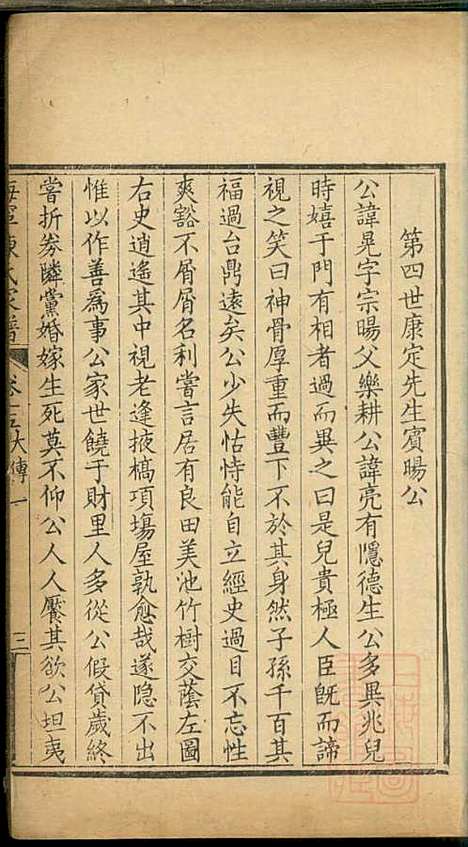 第四世康定先生賓暘公
公諱晃字宗暘父樂耕公諱亮有隱德生公多異兆兒
時嬉于門有相者過而異之曰是兒貴極人臣旣而諦
視之笑曰神骨厚重而豐下不於其身然子孫千百其
福過台鼎遠矣公少失怙恃能自立經史過目不忘性
爽豁不屑屑名利嘗言居有良田美池竹樹交蔭左圖
右史逍遙其中視老逢掖槁項場屋孰愈哉遂隱不出
惟以作善爲事公家世饒于財里人多從公假貸歲終
嘗折券隣黨婚嫁生死莫不仰公人人饜其欲公坦夷
海寧陳氏家譜 卷 大傳一 三